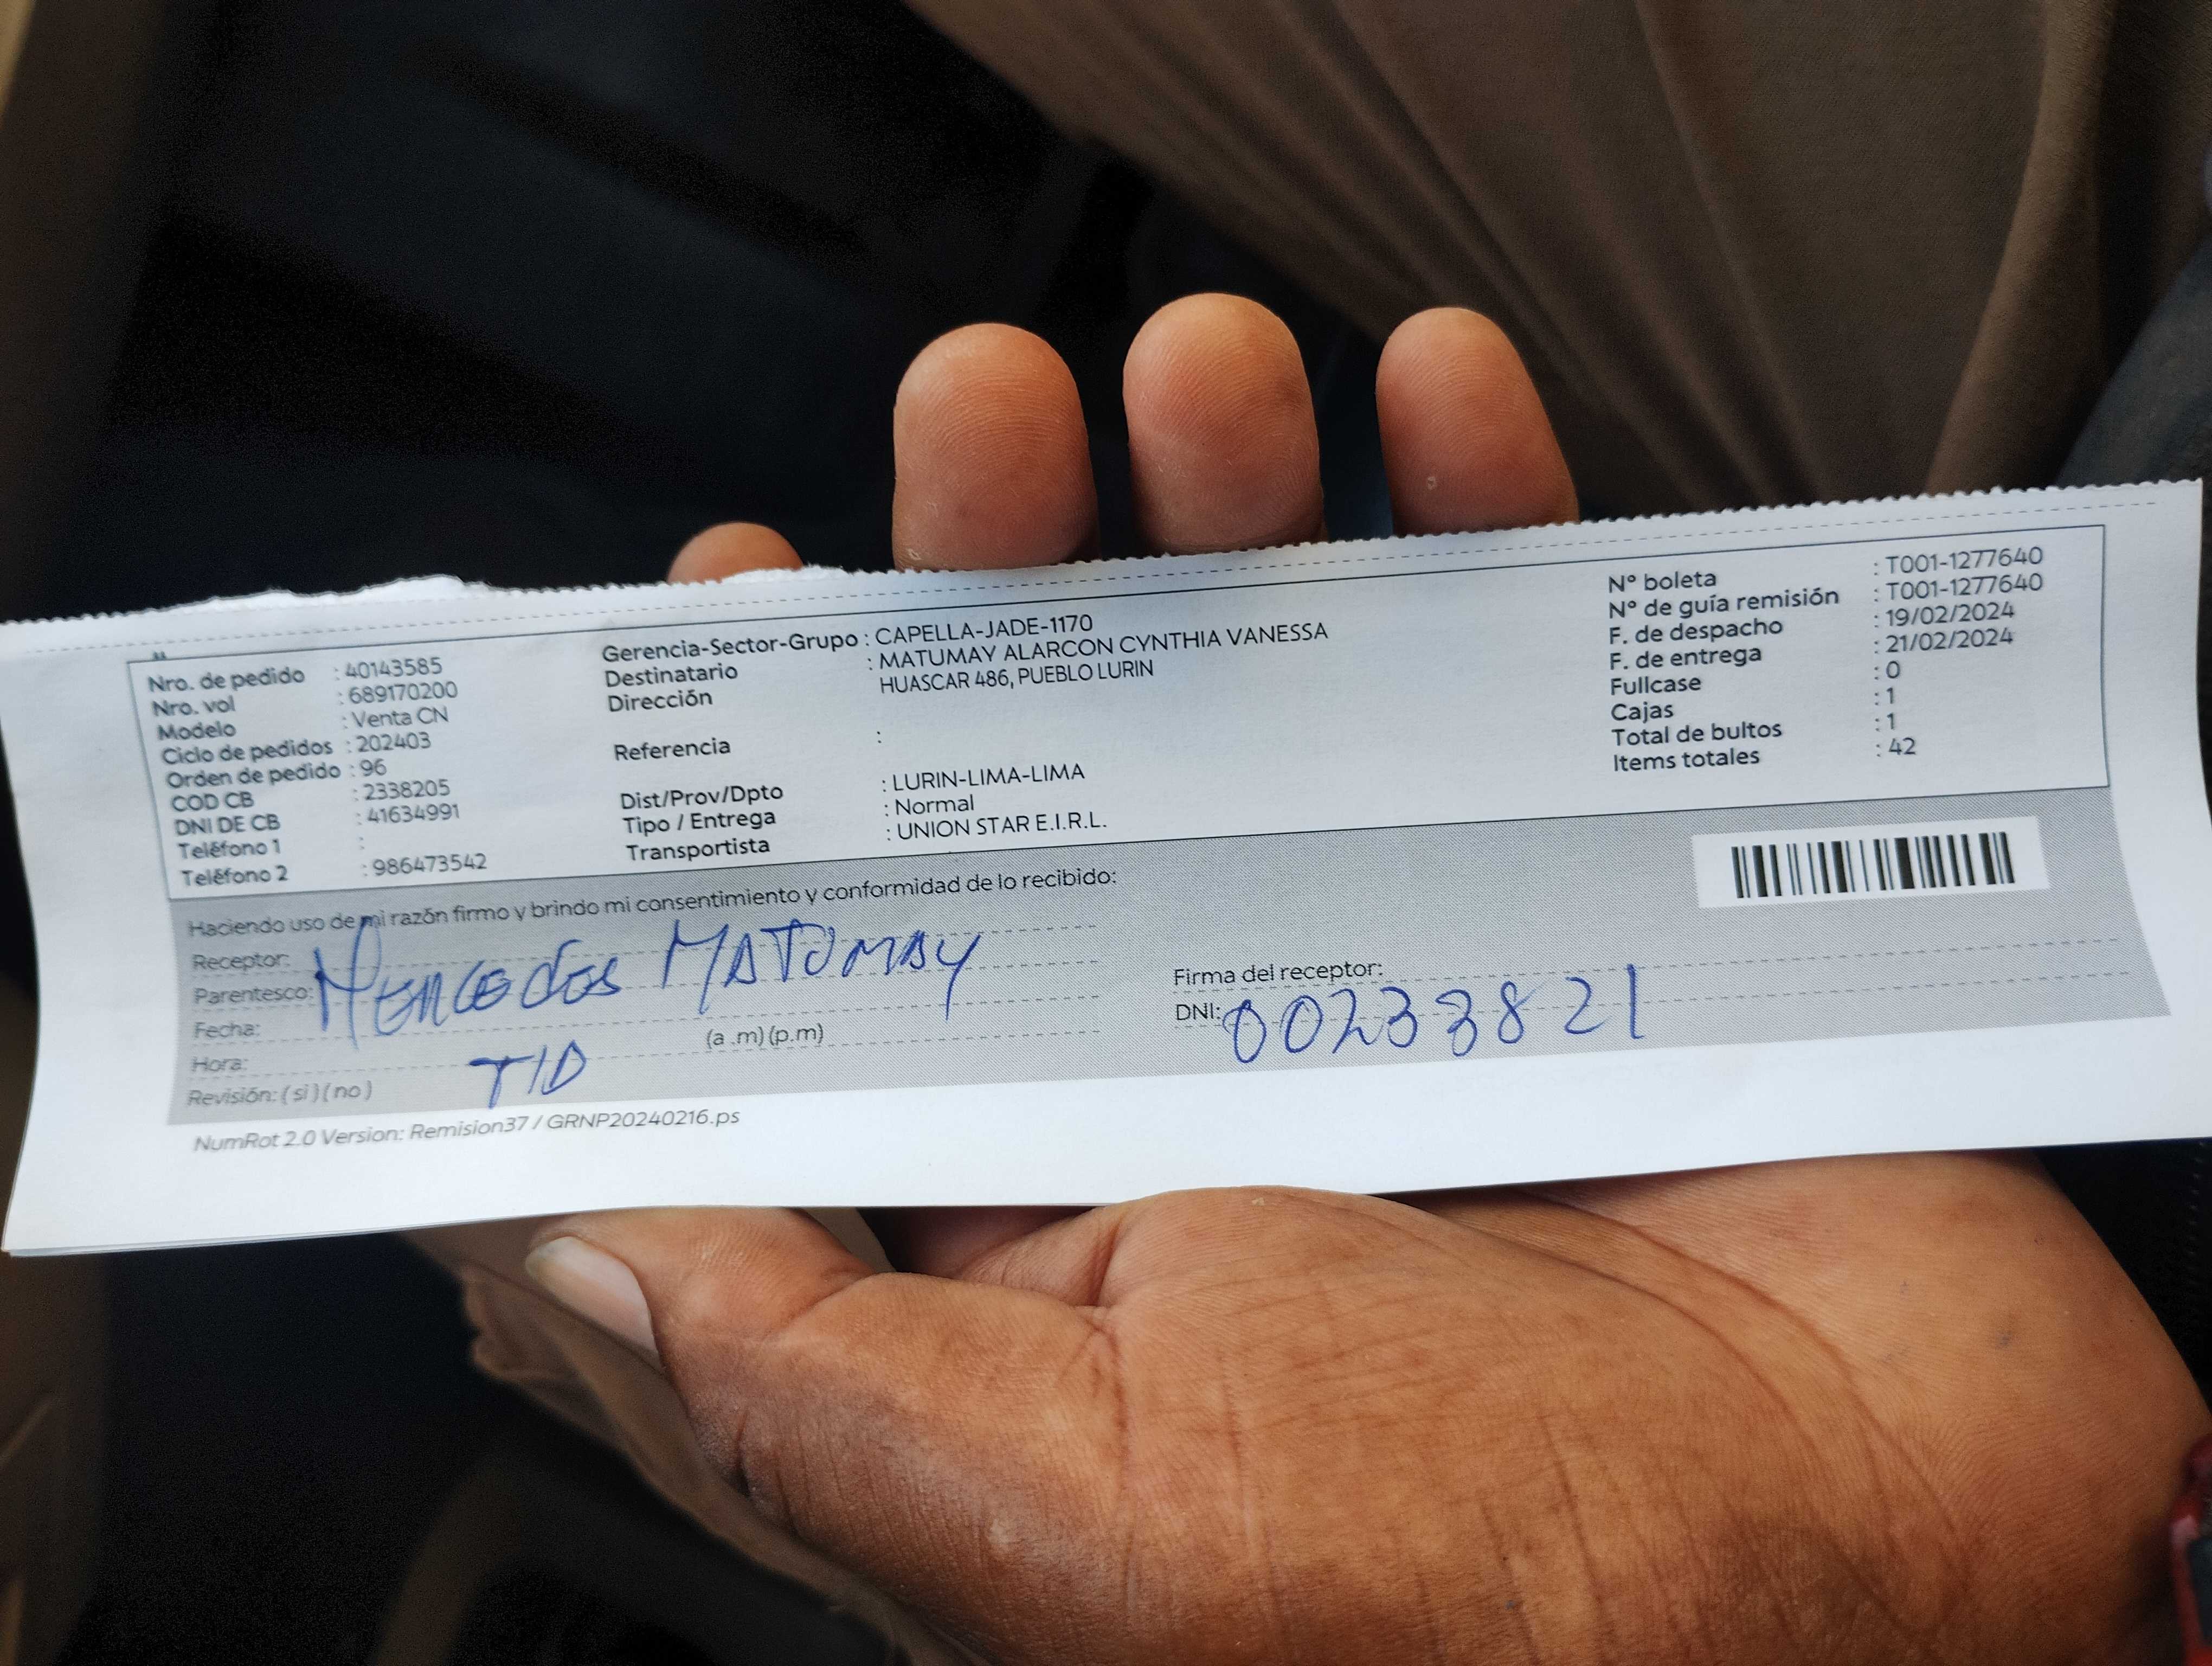 Nro. de pedido : 40143585
Nro. vol : 689170200
Modelo : Venta CN
Ciclo de pedidos : 202403
Orden de pedido : 96
COD CB : 2338205
DNI DE CB : 41634991
Teléfono 1 :
Teléfono 2 : 986473542
Gerencia-Sector-Grupo : CAPELLA-JADE-1170
Destinatario : MATUMAY ALARCON CYNTHIA VANESSA
Dirección HUASCAR 486, PUEBLO LURIN
Referencia :
Dist/Prov/Dpto : LURIN-LIMA-LIMA
Tipo / Entrega : Normal
Transportista : UNION STAR E.I.R.L.
N° boleta : T001-1277640
N° de guía remisión : T001-1277640
F. de despacho : 19/02/2024
F. de entrega : 21/02/2024
Fullcase : 0
Cajas : 1
Total de bultos : 1
Items totales : 42
Haciendo uso de mi razón firmo y brindo mi consentimiento y conformidad de lo recibido:
Receptor:
Parentesco: MATUMAY
Fecha:
Hora: (a .m) (p.m)
Revisión: ( si ) ( no ) T/D
Firma del receptor:
DNI: 00233821
NumRot 2.0 Version: Remision37 / GRNP20240216.ps